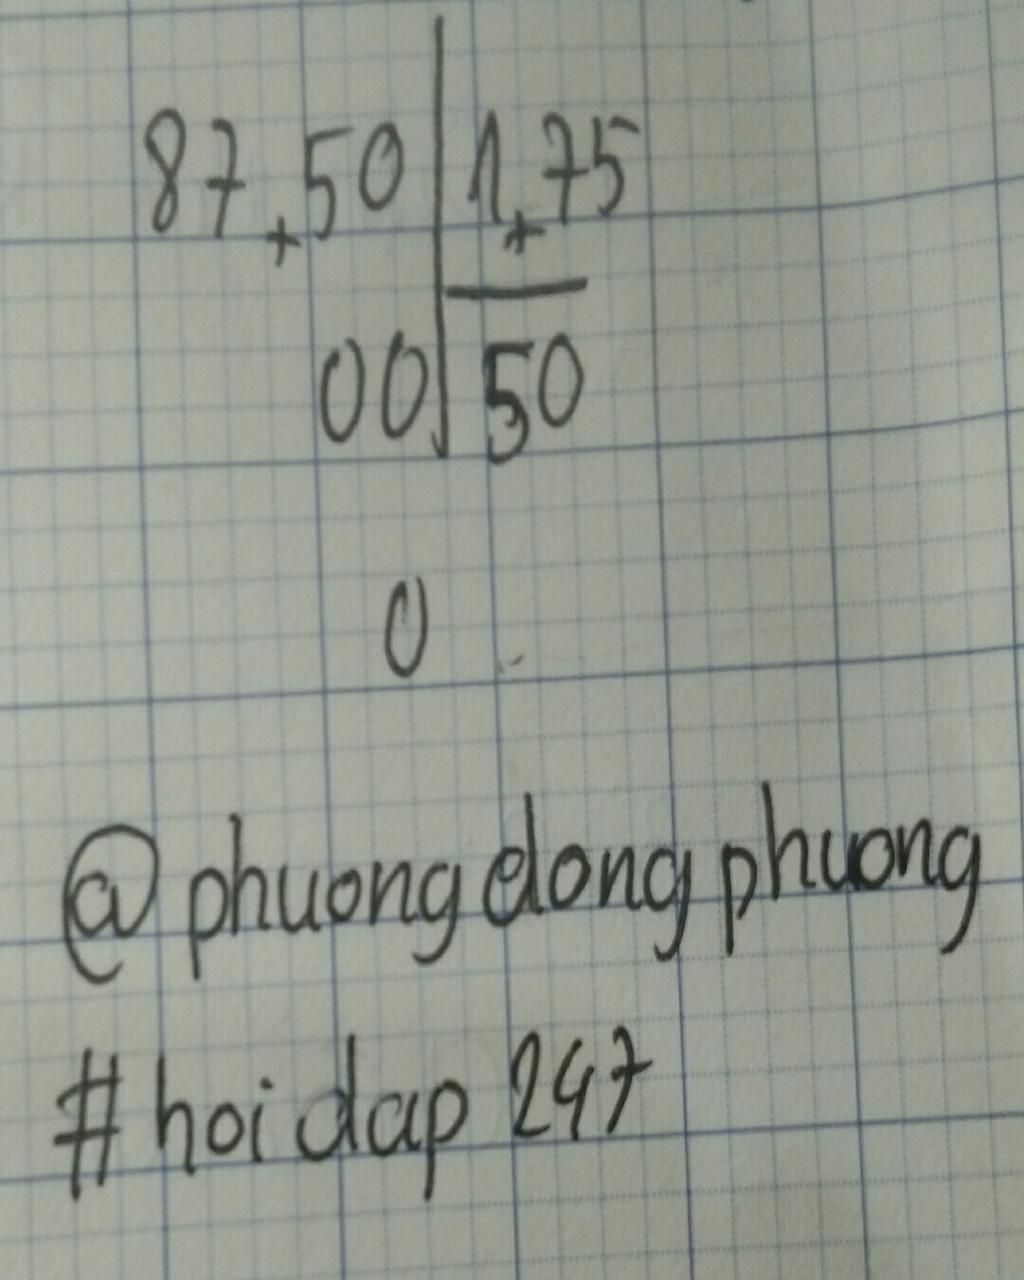 87,50 | 1,75
00 | 50
0
@phuongdongphuong
#hoidap247